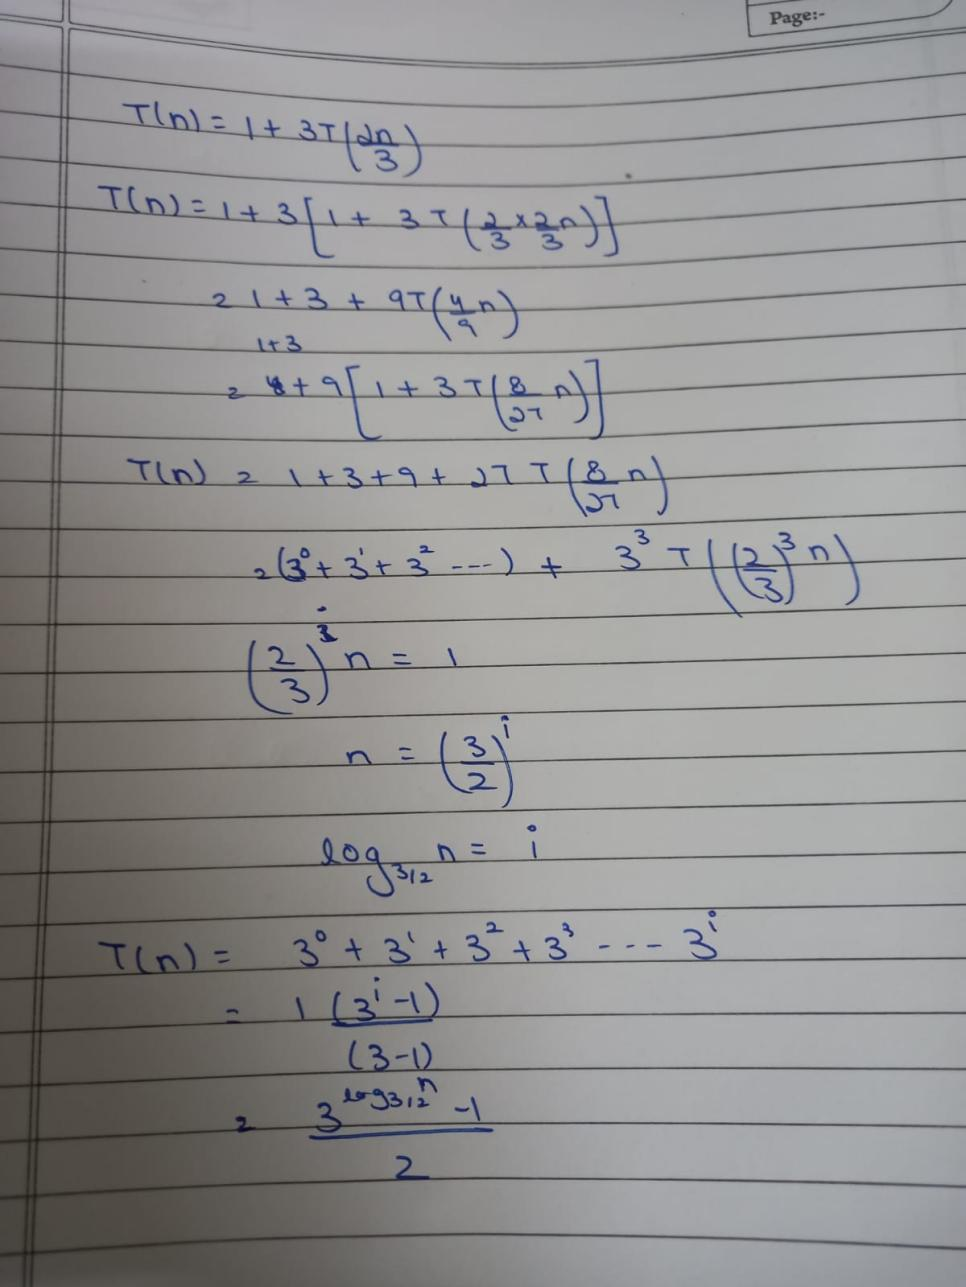 Page:-
T(n) = 1 + 3T(2n/3)
T(n) = 1 + 3[1 + 3T(2/3 × 2/3 n)]
= 1 + 3 + 9T(4/9 n)
1+3
= + 9[1 + 3T(8/27 n)]
T(n) = 1 + 3 + 9 + 27 T(8/27 n)
= (3^0 + 3^1 + 3^2 ---) + 3^3 T((2/3)^3 n)
(2/3)^i n = 1
n = (3/2)^i
log_3/2 n = i
T(n) = 3^0 + 3^1 + 3^2 + 3^3 --- 3^i
= 1 (3^i - 1)
(3-1)
= 3^log_3/2 n - 1
2